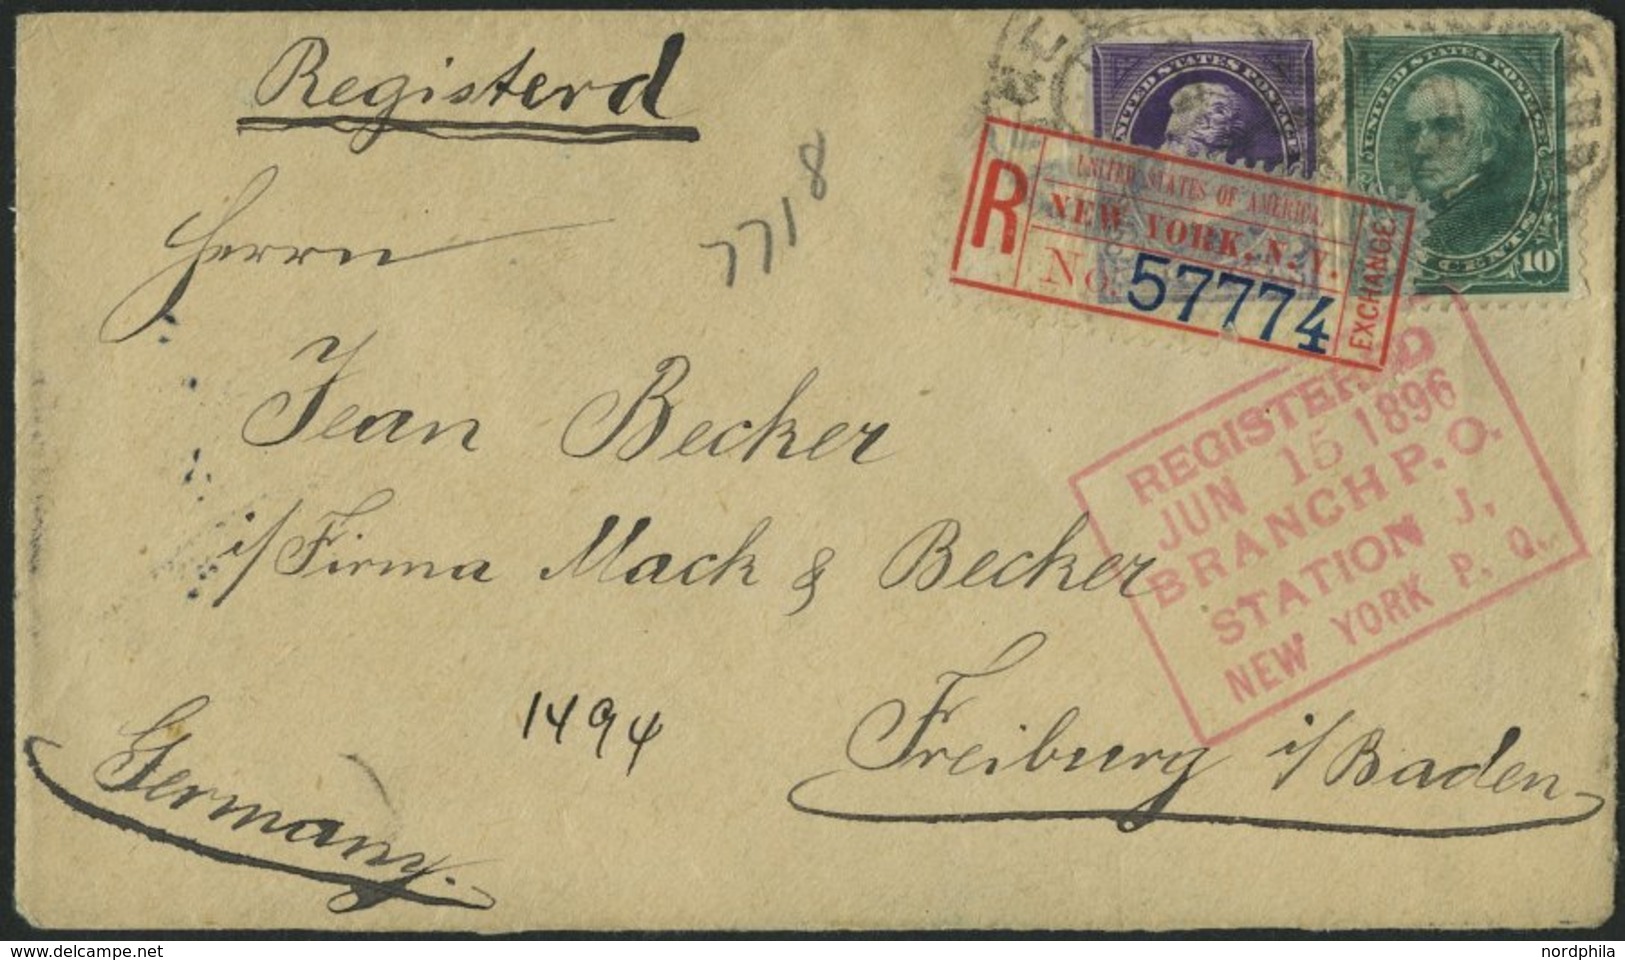 Registerd
7718
UNITED STATES POSTAGE
UNITED STATES POSTAGE
CENTS 10
R
UNITED STATES OF AMERICA.
NEW YORK, N. Y.
No. 57774
EXCHANGE
Herrn
Jean Becker
i/ Firma Mack & Becker
Freiburg i/Baden
Germany.
1494
REGISTERED
JUN 15 1896
BRANCH P. O.
STATION J,
NEW YORK P. O.
www.delcampe.net
nordphila